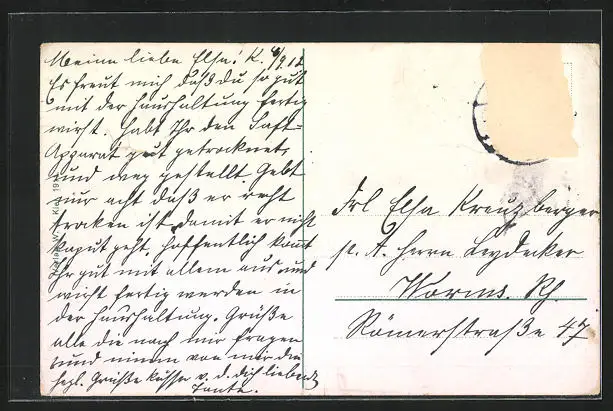 Meine liebe Elsa! K. 6/9.12
Es freut mich daß du so gut
mit der Haushaltung fertig
wirst. Habt Ihr den Saft-
Apparat gut getrocknet,
und weg gestellt Gebt
nur acht daß er recht
trocken ist, damit er nicht
kaput geht. Hoffentlich kommt
Ihr gut mit allem aus und
wirst fertig werden in
der Haushaltung. Grüße
alle die nach mir fragen
und nimm von mir die
herzl. Grüße Küsse v. d. dich liebend
Tante.
Frl Elsa Kreuzberger
p. A. Herrn Leydecker
Worms. Rh.
Römerstraße 47